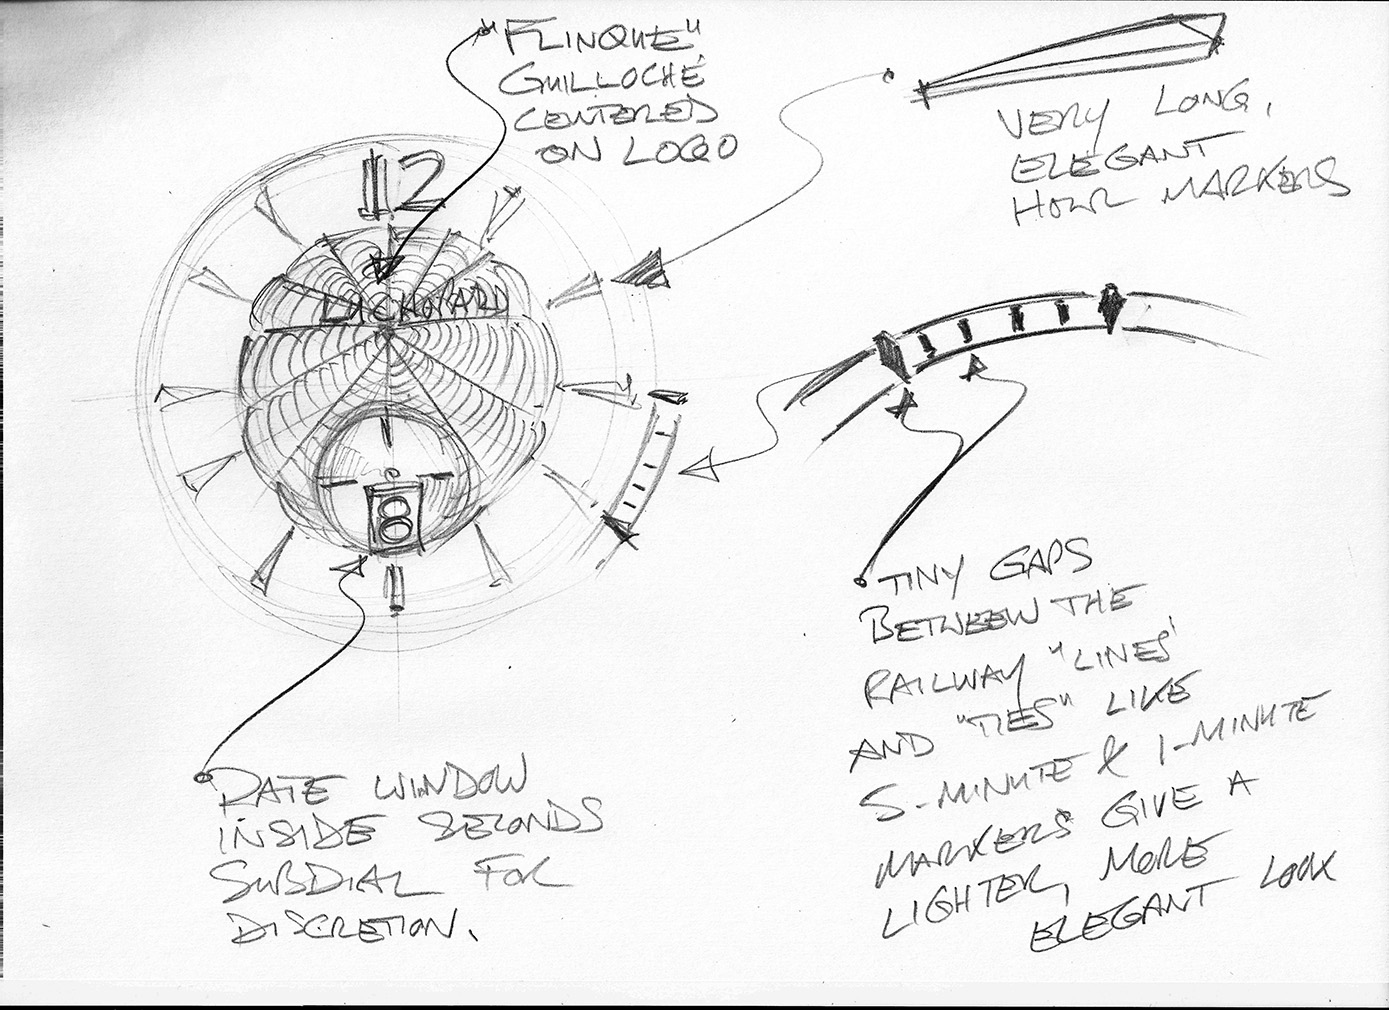 "FLINQUE"
GUILLOCHÉ
CENTERED
ON LOGO
VERY LONG,
ELEGANT
HOUR MARKERS
12
L.U.CHOPARD
8
TINY GAPS
BETWEEN THE
RAILWAY "LINES"
AND "TIES" LIKE
5-MINUTE & 1-MINUTE
MARKERS GIVE A
LIGHTER, MORE
ELEGANT LOOK
DATE WINDOW
INSIDE SECONDS
SUBDIAL FOR
DISCRETION.